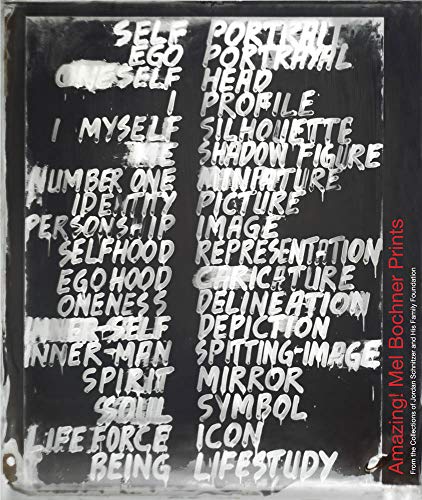 SELF PORTRAIT
EGO PORTRAYAL
ONESELF HEAD
I PROFILE
I MYSELF SILHOUETTE
ME SHADOW FIGURE
NUMBER ONE MINIATURE
IDENTITY PICTURE
PERSONSHIP IMAGE
SELFHOOD REPRESENTATION
EGOHOOD CARICATURE
ONENESS DELINEATION
INNER-SELF DEPICTION
INNER-MAN SPITTING-IMAGE
SPIRIT MIRROR
SOUL SYMBOL
LIFE FORCE ICON
BEING LIFESTUDY
Amazing! Mel Bochner Prints
From the Collections of Jordan Schnitzer and His Family Foundation